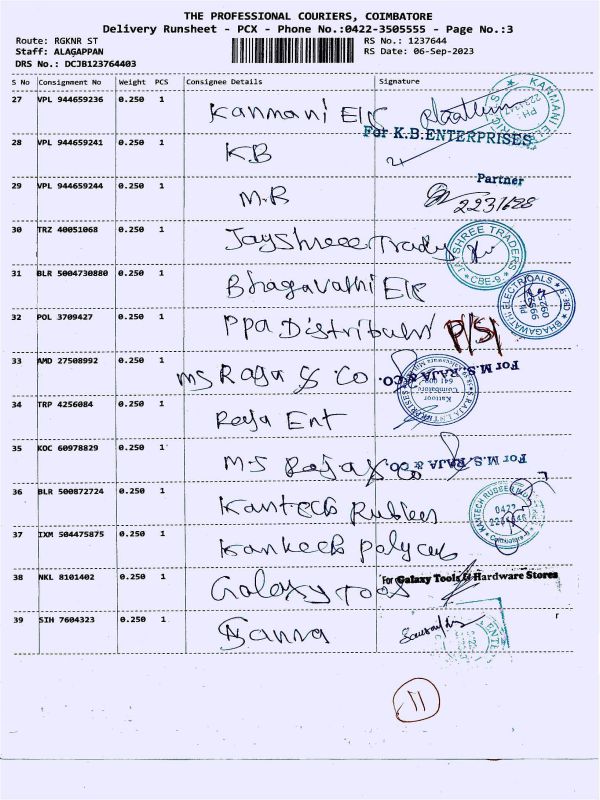 THE PROFESSIONAL COURIERS, COIMBATORE
Delivery Runsheet - PCX - Phone No.:0422-3505555 - Page No.:3
Route: RGKNR ST
RS No.: 1237644
Staff: ALAGAPPAN
RS Date: 06-Sep-2023
DRS No.: DCJB123764403
S No Consignment No Weight PCS Consignee Details Signature
27 VPL 944659236 0.250 1 Kanmani Elc
For K.B.ENTERPRISES
28 VPL 944659241 0.250 1 KB
Partner
29 VPL 944659244 0.250 1 M.B
2231628
30 TRZ 40051068 0.250 1 Jayshree Trady
SHREE TRADERS CBE-9
31 BLR 5004730880 0.250 1 Bhagavathi Elc
BHAGAWATHI ELECTRICALS CBE-9
32 POL 3709427 0.250 1 PPA Distributers P/S
33 AMD 27508992 0.250 1 MS Raja & Co
For M.S. RAJA & CO.
RAJA ENTERPRISES Kattoor Coimbatore 641 009
34 TRP 4256084 0.250 1 Raja Ent
35 KOC 60978829 0.250 1 M.S Raja & Co
For M.S. RAJA & CO.
36 BLR 500872724 0.250 1 Kantech Rubber
KANTECH RUBBER 0422 Coimbatore-9
37 IXM 504475875 0.250 1 Kantech Polycub
38 NKL 8101402 0.250 1 Galaxy Tools
For Galaxy Tools & Hardware Stores
39 SIH 7604323 0.250 1 Sanra
11